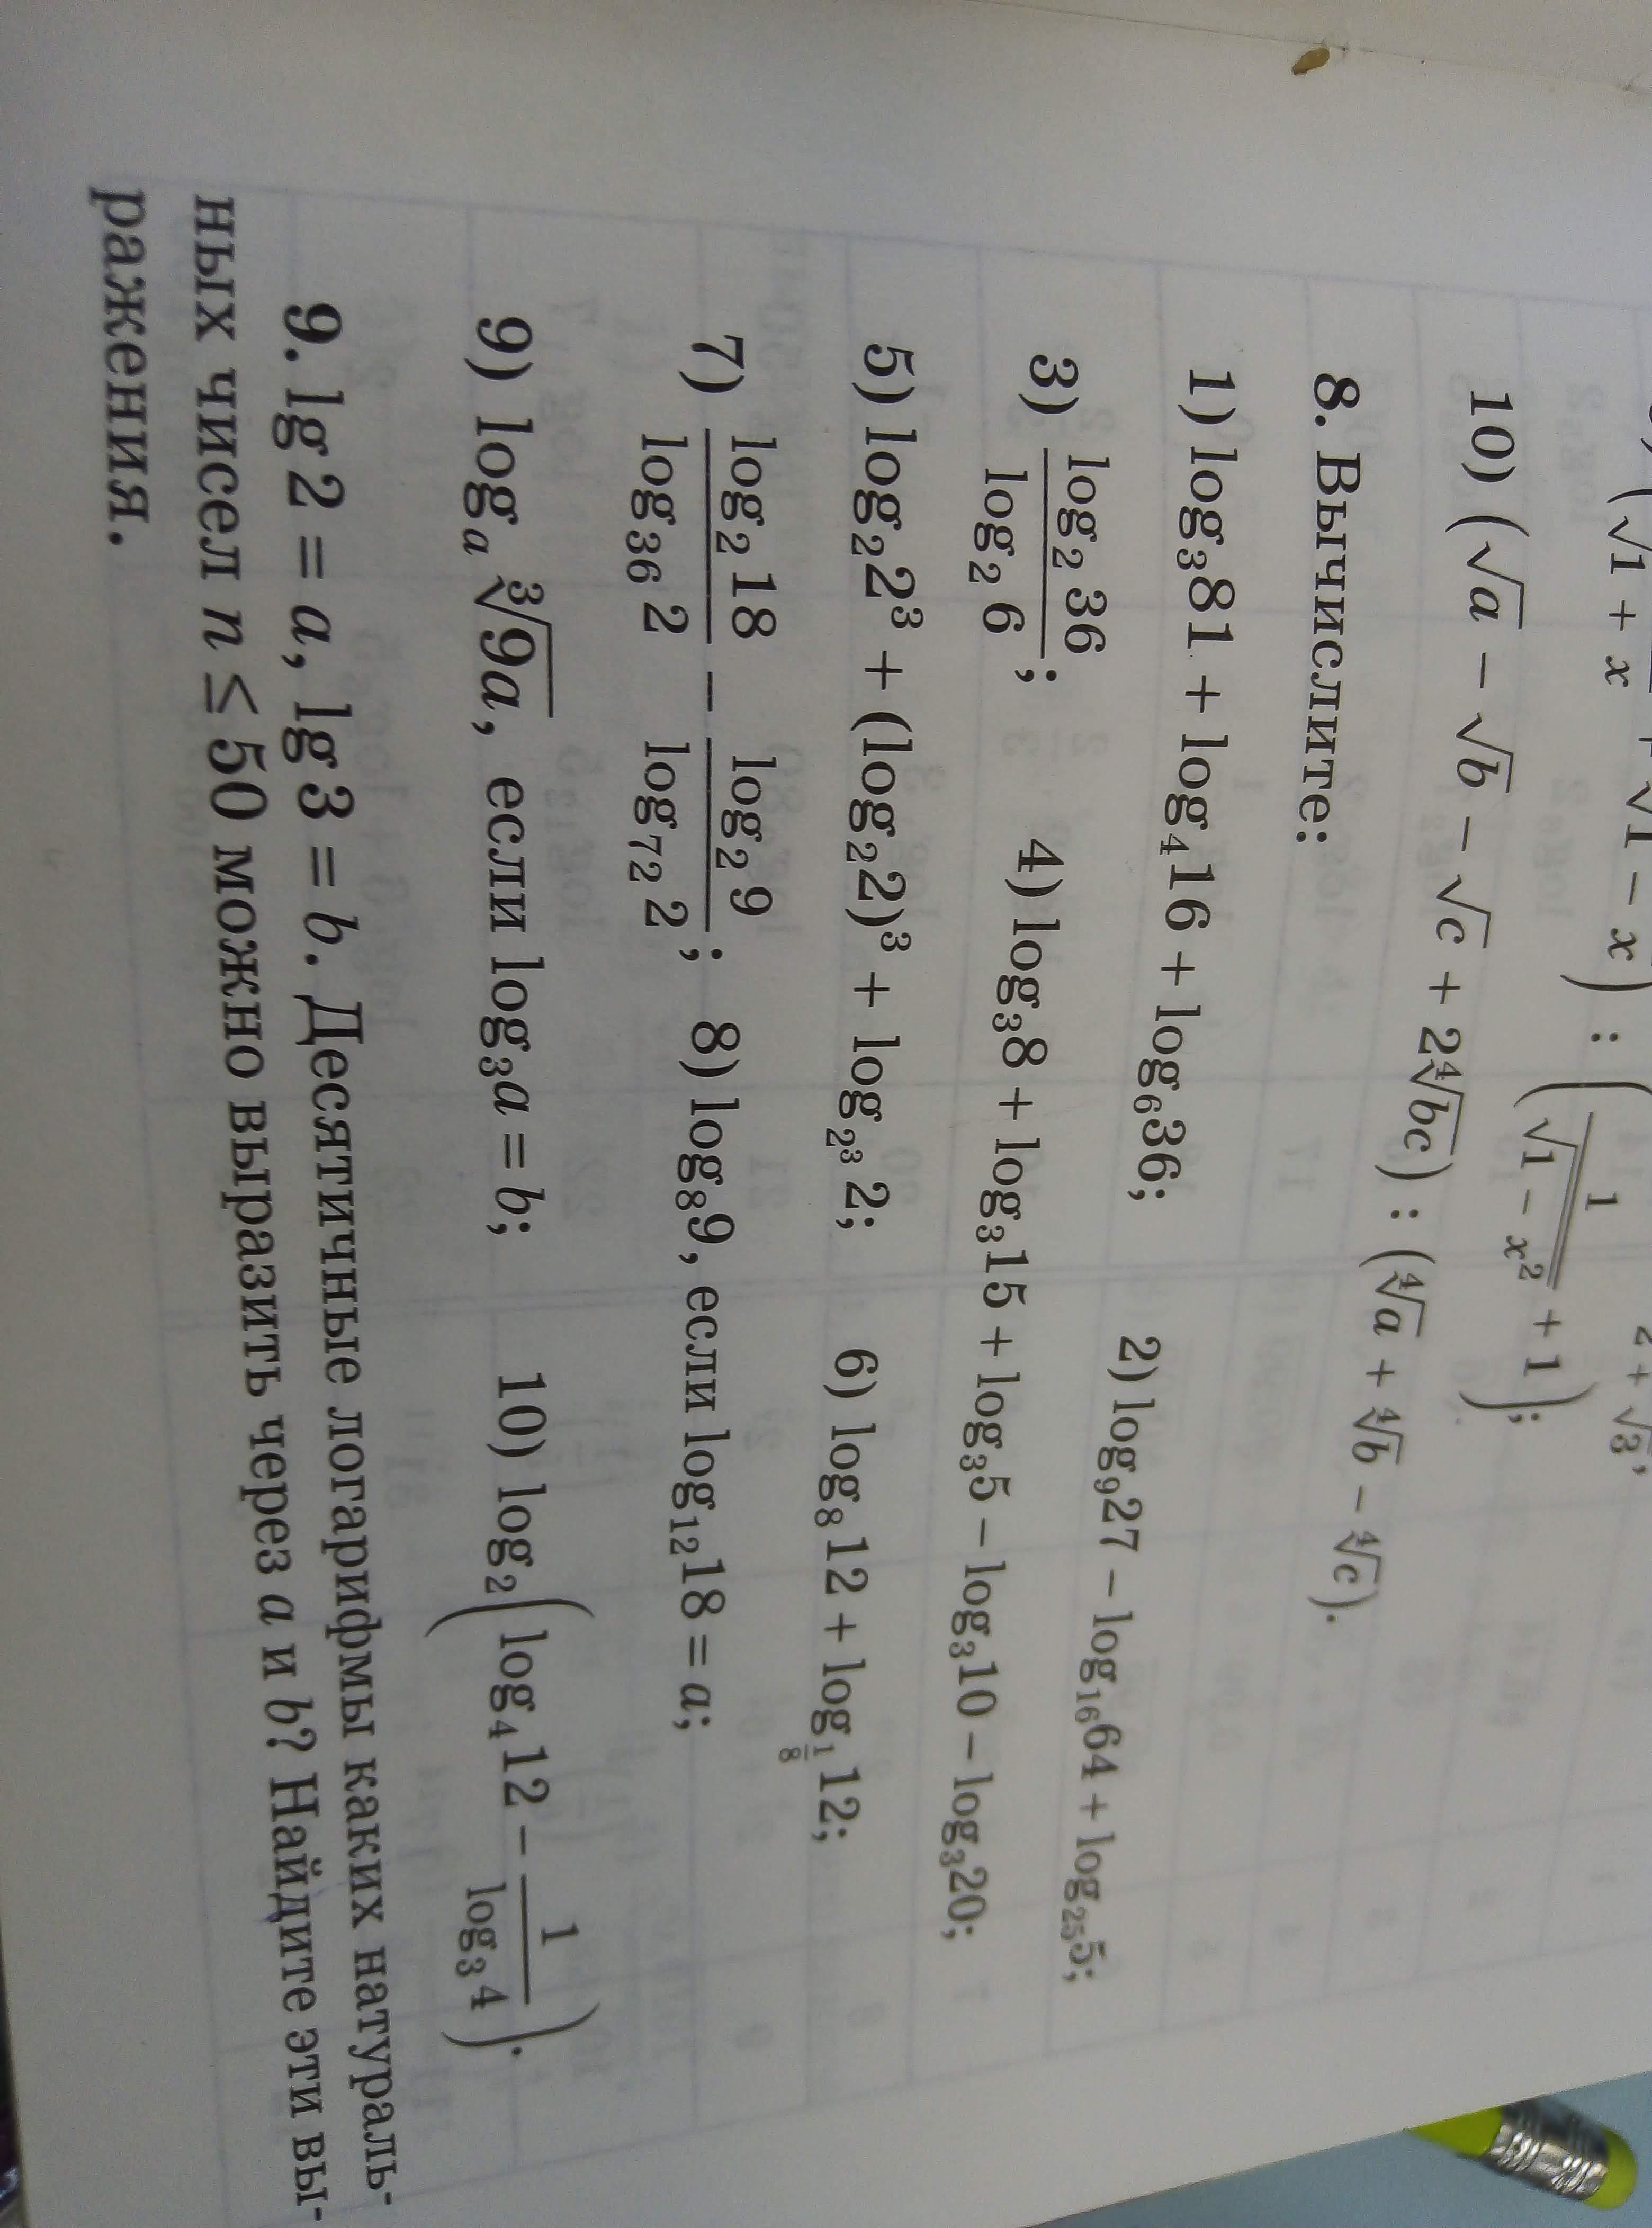 (√1 + x + √1 − x) : (1/√(1 − x²) + 1);
2 + √3,
10) (√a − √b − √c + 2⁴√bc) : (⁴√a + ⁴√b − ⁴√c).
8. Вычислите:
1) log₃81 + log₄16 + log₆36; 2) log₉27 − log₁₆64 + log₂₅5;
3) log₂ 36 / log₂ 6; 4) log₃8 + log₃15 + log₃5 − log₃10 − log₃20;
5) log₂2³ + (log₂2)³ + log_{2³} 2; 6) log₈12 + log_{1/8} 12;
7) log₂ 18 / log₃₆ 2 − log₂ 9 / log₇₂ 2; 8) log₈9, если log₁₂18 = a;
9) logₐ ³√9a, если log₃a = b; 10) log₂(log₄12 − 1/log₃ 4).
9. lg 2 = a, lg 3 = b. Десятичные логарифмы каких натураль-
ных чисел n ≤ 50 можно выразить через a и b? Найдите эти вы-
ражения.